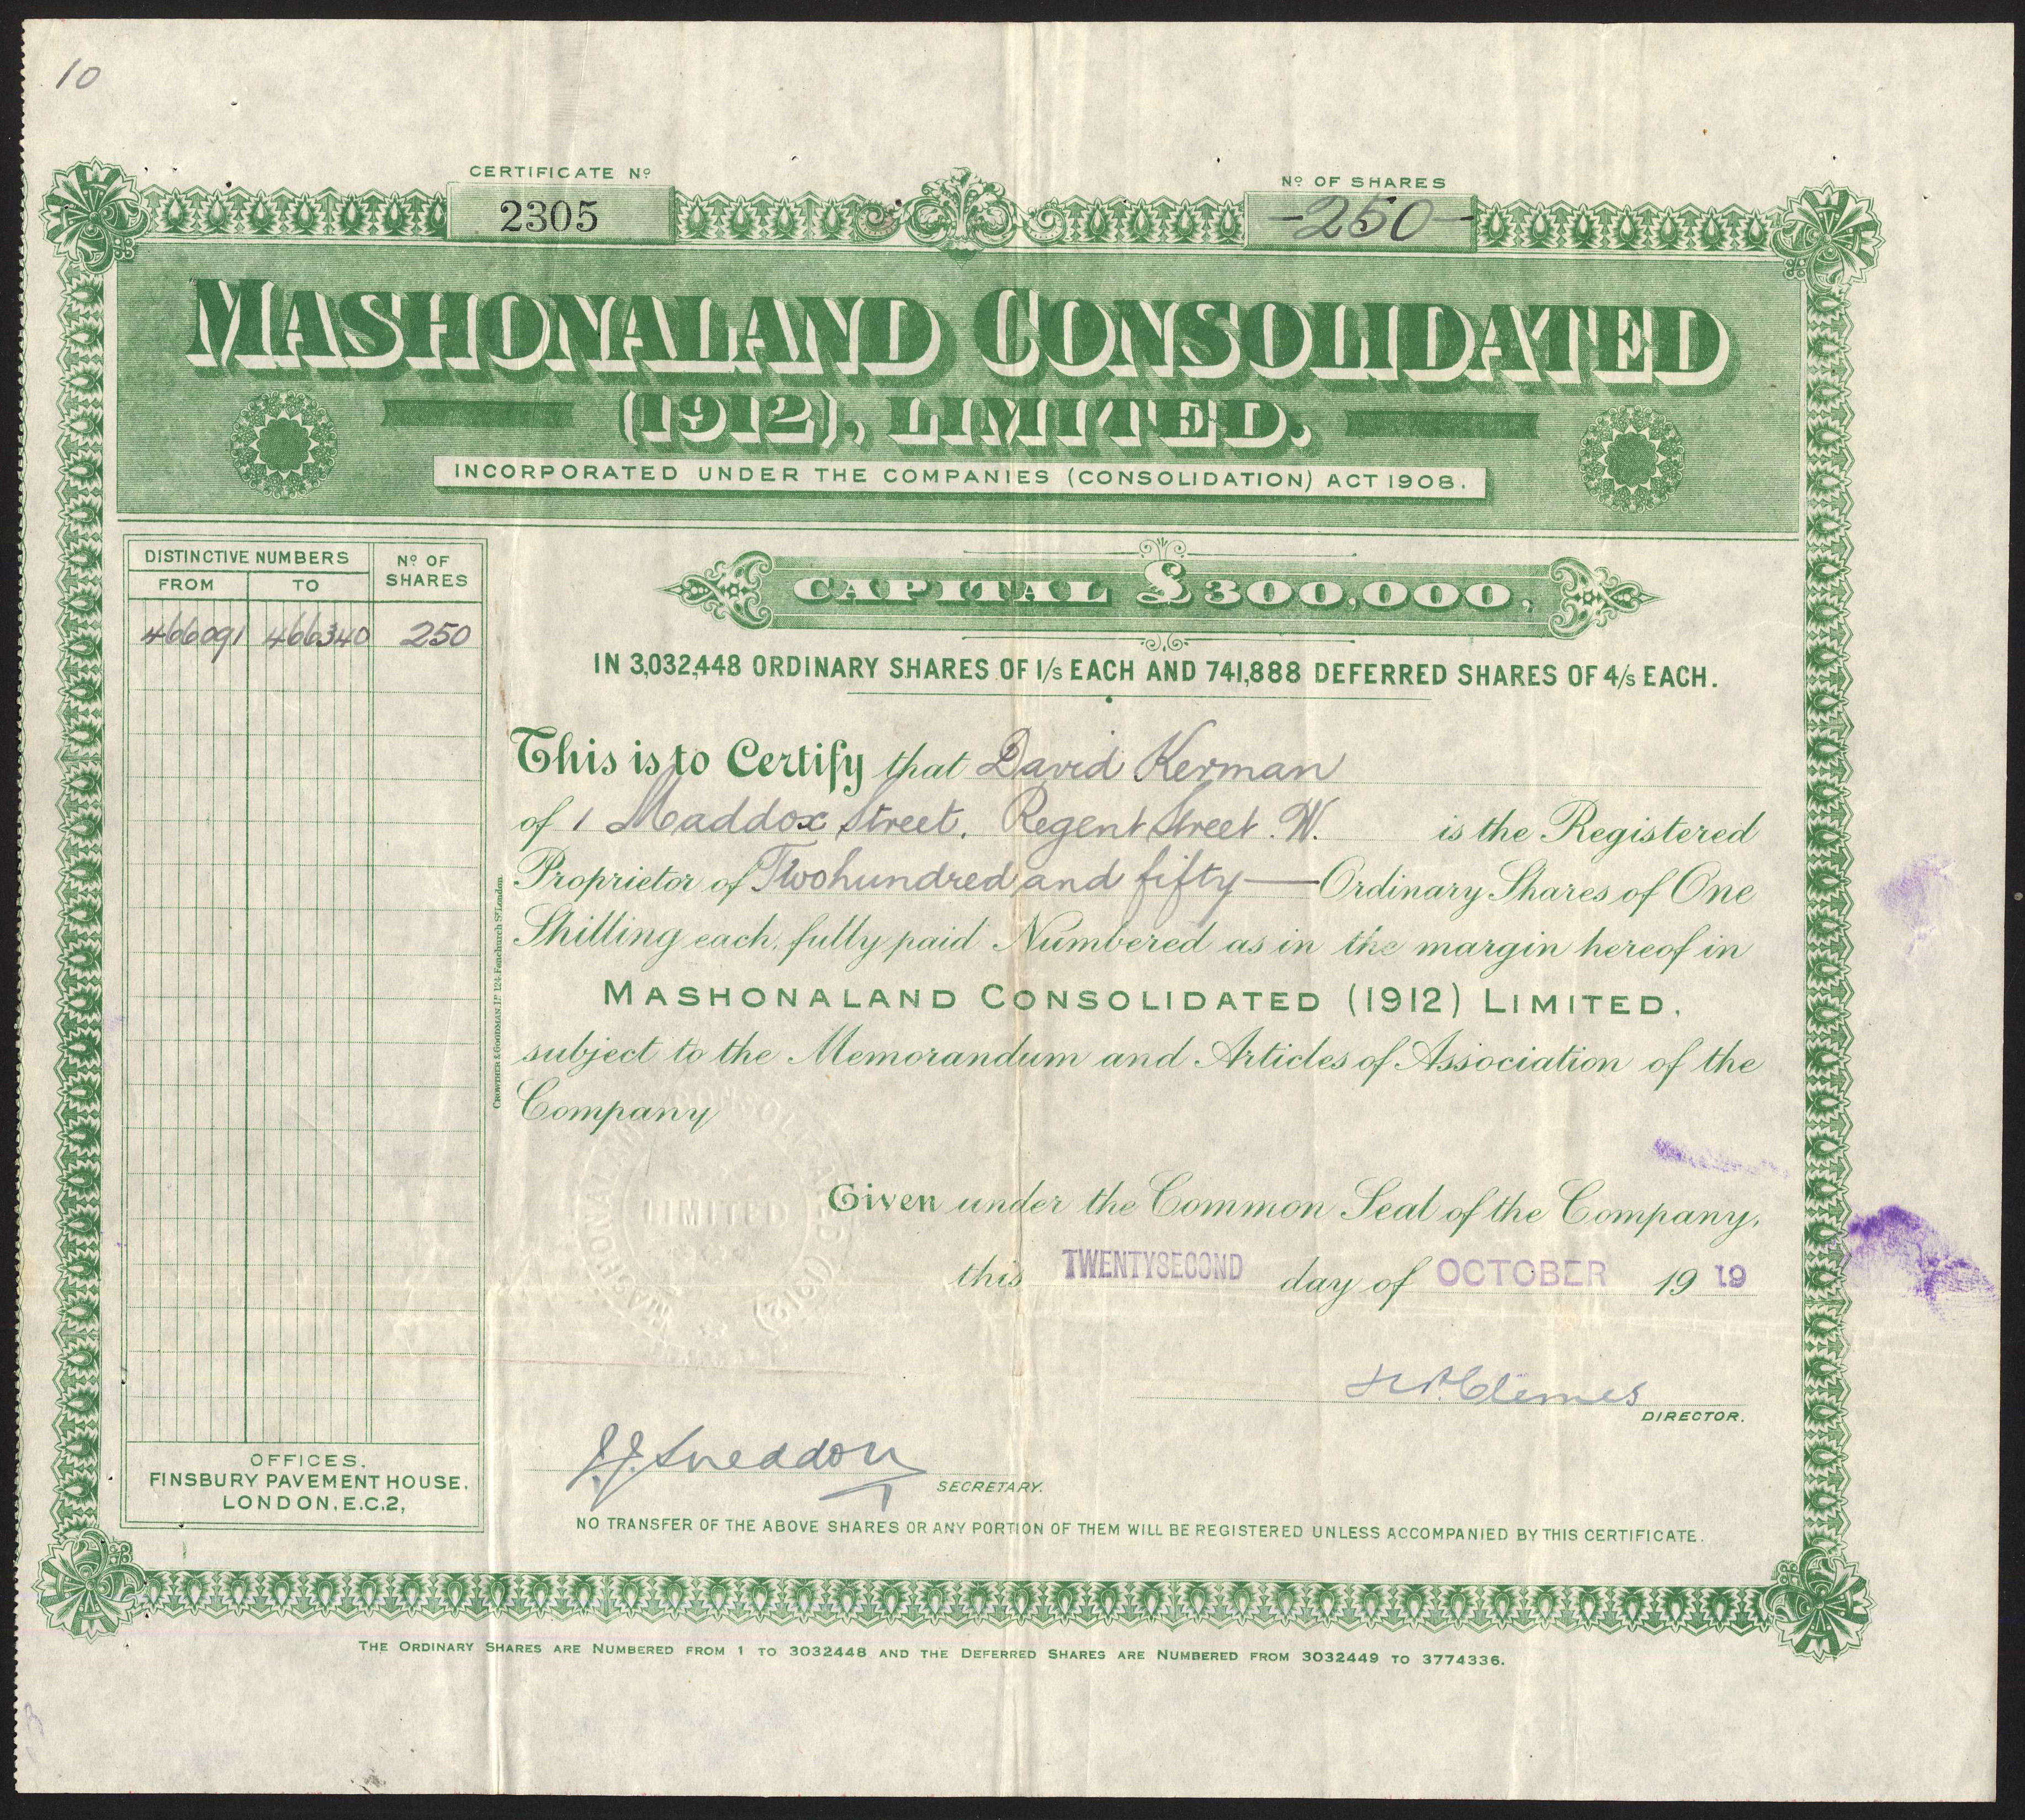 10
CERTIFICATE Nº
2305
Nº OF SHARES
-250-
MASHONALAND CONSOLIDATED
(1912), LIMITED.
INCORPORATED UNDER THE COMPANIES (CONSOLIDATION) ACT 1908.
DISTINCTIVE NUMBERS
FROM TO
Nº OF SHARES
466091 466340 250
CAPITAL £300,000,
IN 3,032,448 ORDINARY SHARES OF 1/s EACH AND 741,888 DEFERRED SHARES OF 4/s EACH.
This is to Certify that David Kerman
of 1 Maddox Street. Regent Street. W. is the Registered
Proprietor of Two hundred and fifty — Ordinary Shares of One
Shilling each, fully paid Numbered as in the margin hereof in
MASHONALAND CONSOLIDATED (1912) LIMITED,
subject to the Memorandum and Articles of Association of the
Company
CROWTHER & GOODMAN, Lᴰ 124, Fenchurch Sᵗ London.
MASHONALAND CONSOLIDATED (1912)
LIMITED
Given under the Common Seal of the Company,
this TWENTYSECOND day of OCTOBER 19 19
Clemes
DIRECTOR.
J.J. Sneddon
SECRETARY.
OFFICES.
FINSBURY PAVEMENT HOUSE,
LONDON, E.C.2,
NO TRANSFER OF THE ABOVE SHARES OR ANY PORTION OF THEM WILL BE REGISTERED UNLESS ACCOMPANIED BY THIS CERTIFICATE.
THE ORDINARY SHARES ARE NUMBERED FROM 1 TO 3032448 AND THE DEFERRED SHARES ARE NUMBERED FROM 3032449 TO 3774336.